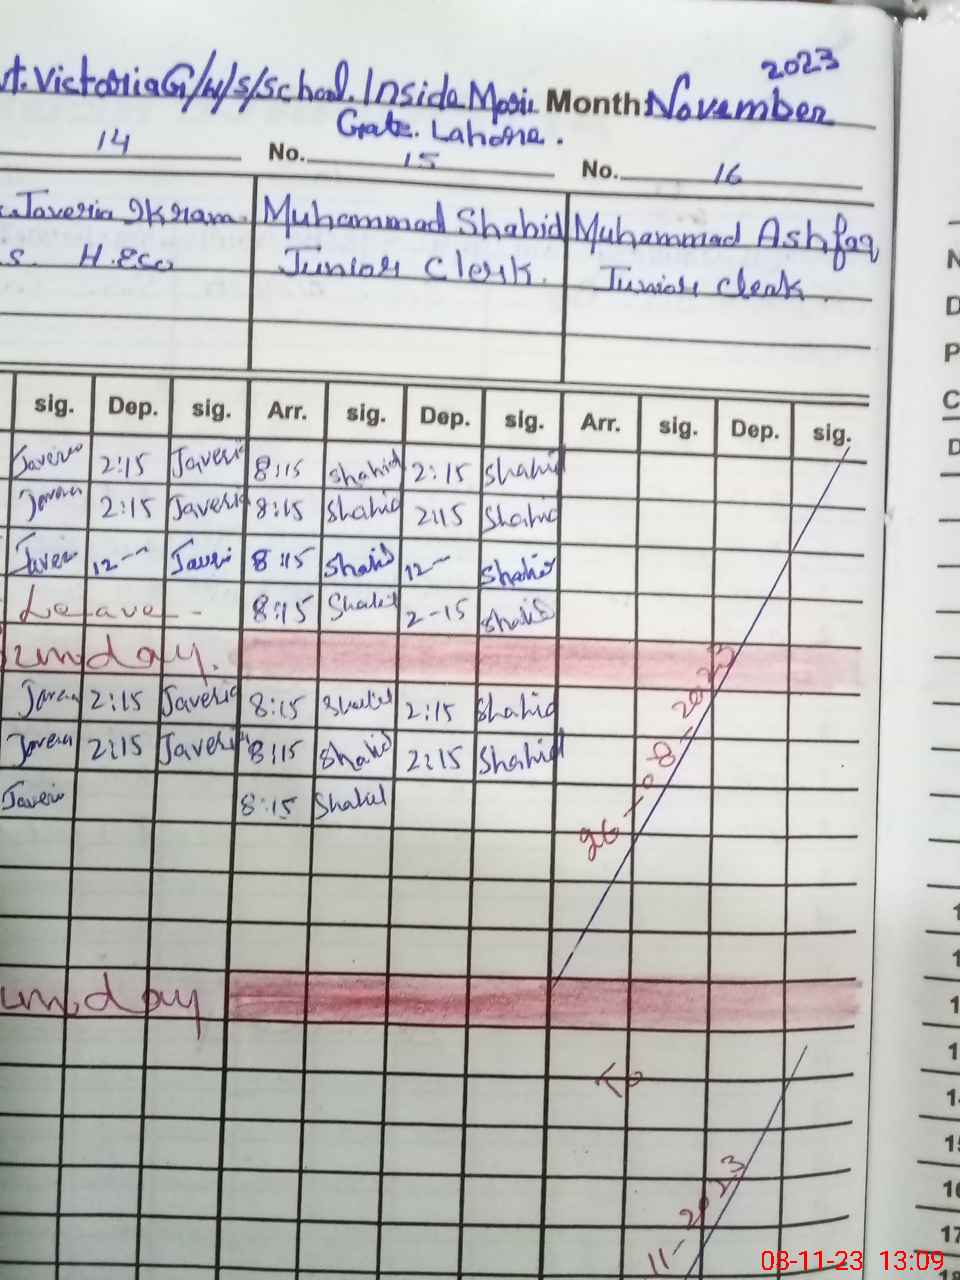 2023
t. Victoria G/H/S/School. Inside Mori Month November
Gate. Lahore.
14 No. 15 No. 16
Javeria Ikram. Muhammad Shahid Muhammad Ashfaq
S. H.Eco Junior Clerk. Junior Clerk.
sig. Dep. sig. Arr. sig. Dep. sig. Arr. sig. Dep. sig.
Javeria 2:15 Javeria 8:15 Shahid 2:15 Shahid
Javeria 2:15 Javeria 8:15 Shahid 2:15 Shahid
Javeria 12-- Javeria 8:15 Shahid 12-- Shahid
Leave - 8:15 Shahid 2-15 Shahid
unday.
Javeria 2:15 Javeria 8:15 Shahid 2:15 Shahid
Javeria 2:15 Javeria 8:15 Shahid 2:15 Shahid
Javeria 8:15 Shahid
26-08-2023
unday
To
11-2023
N
D
P
C
D
1
1
1
1
1
15
16
17
08-11-23 13:09